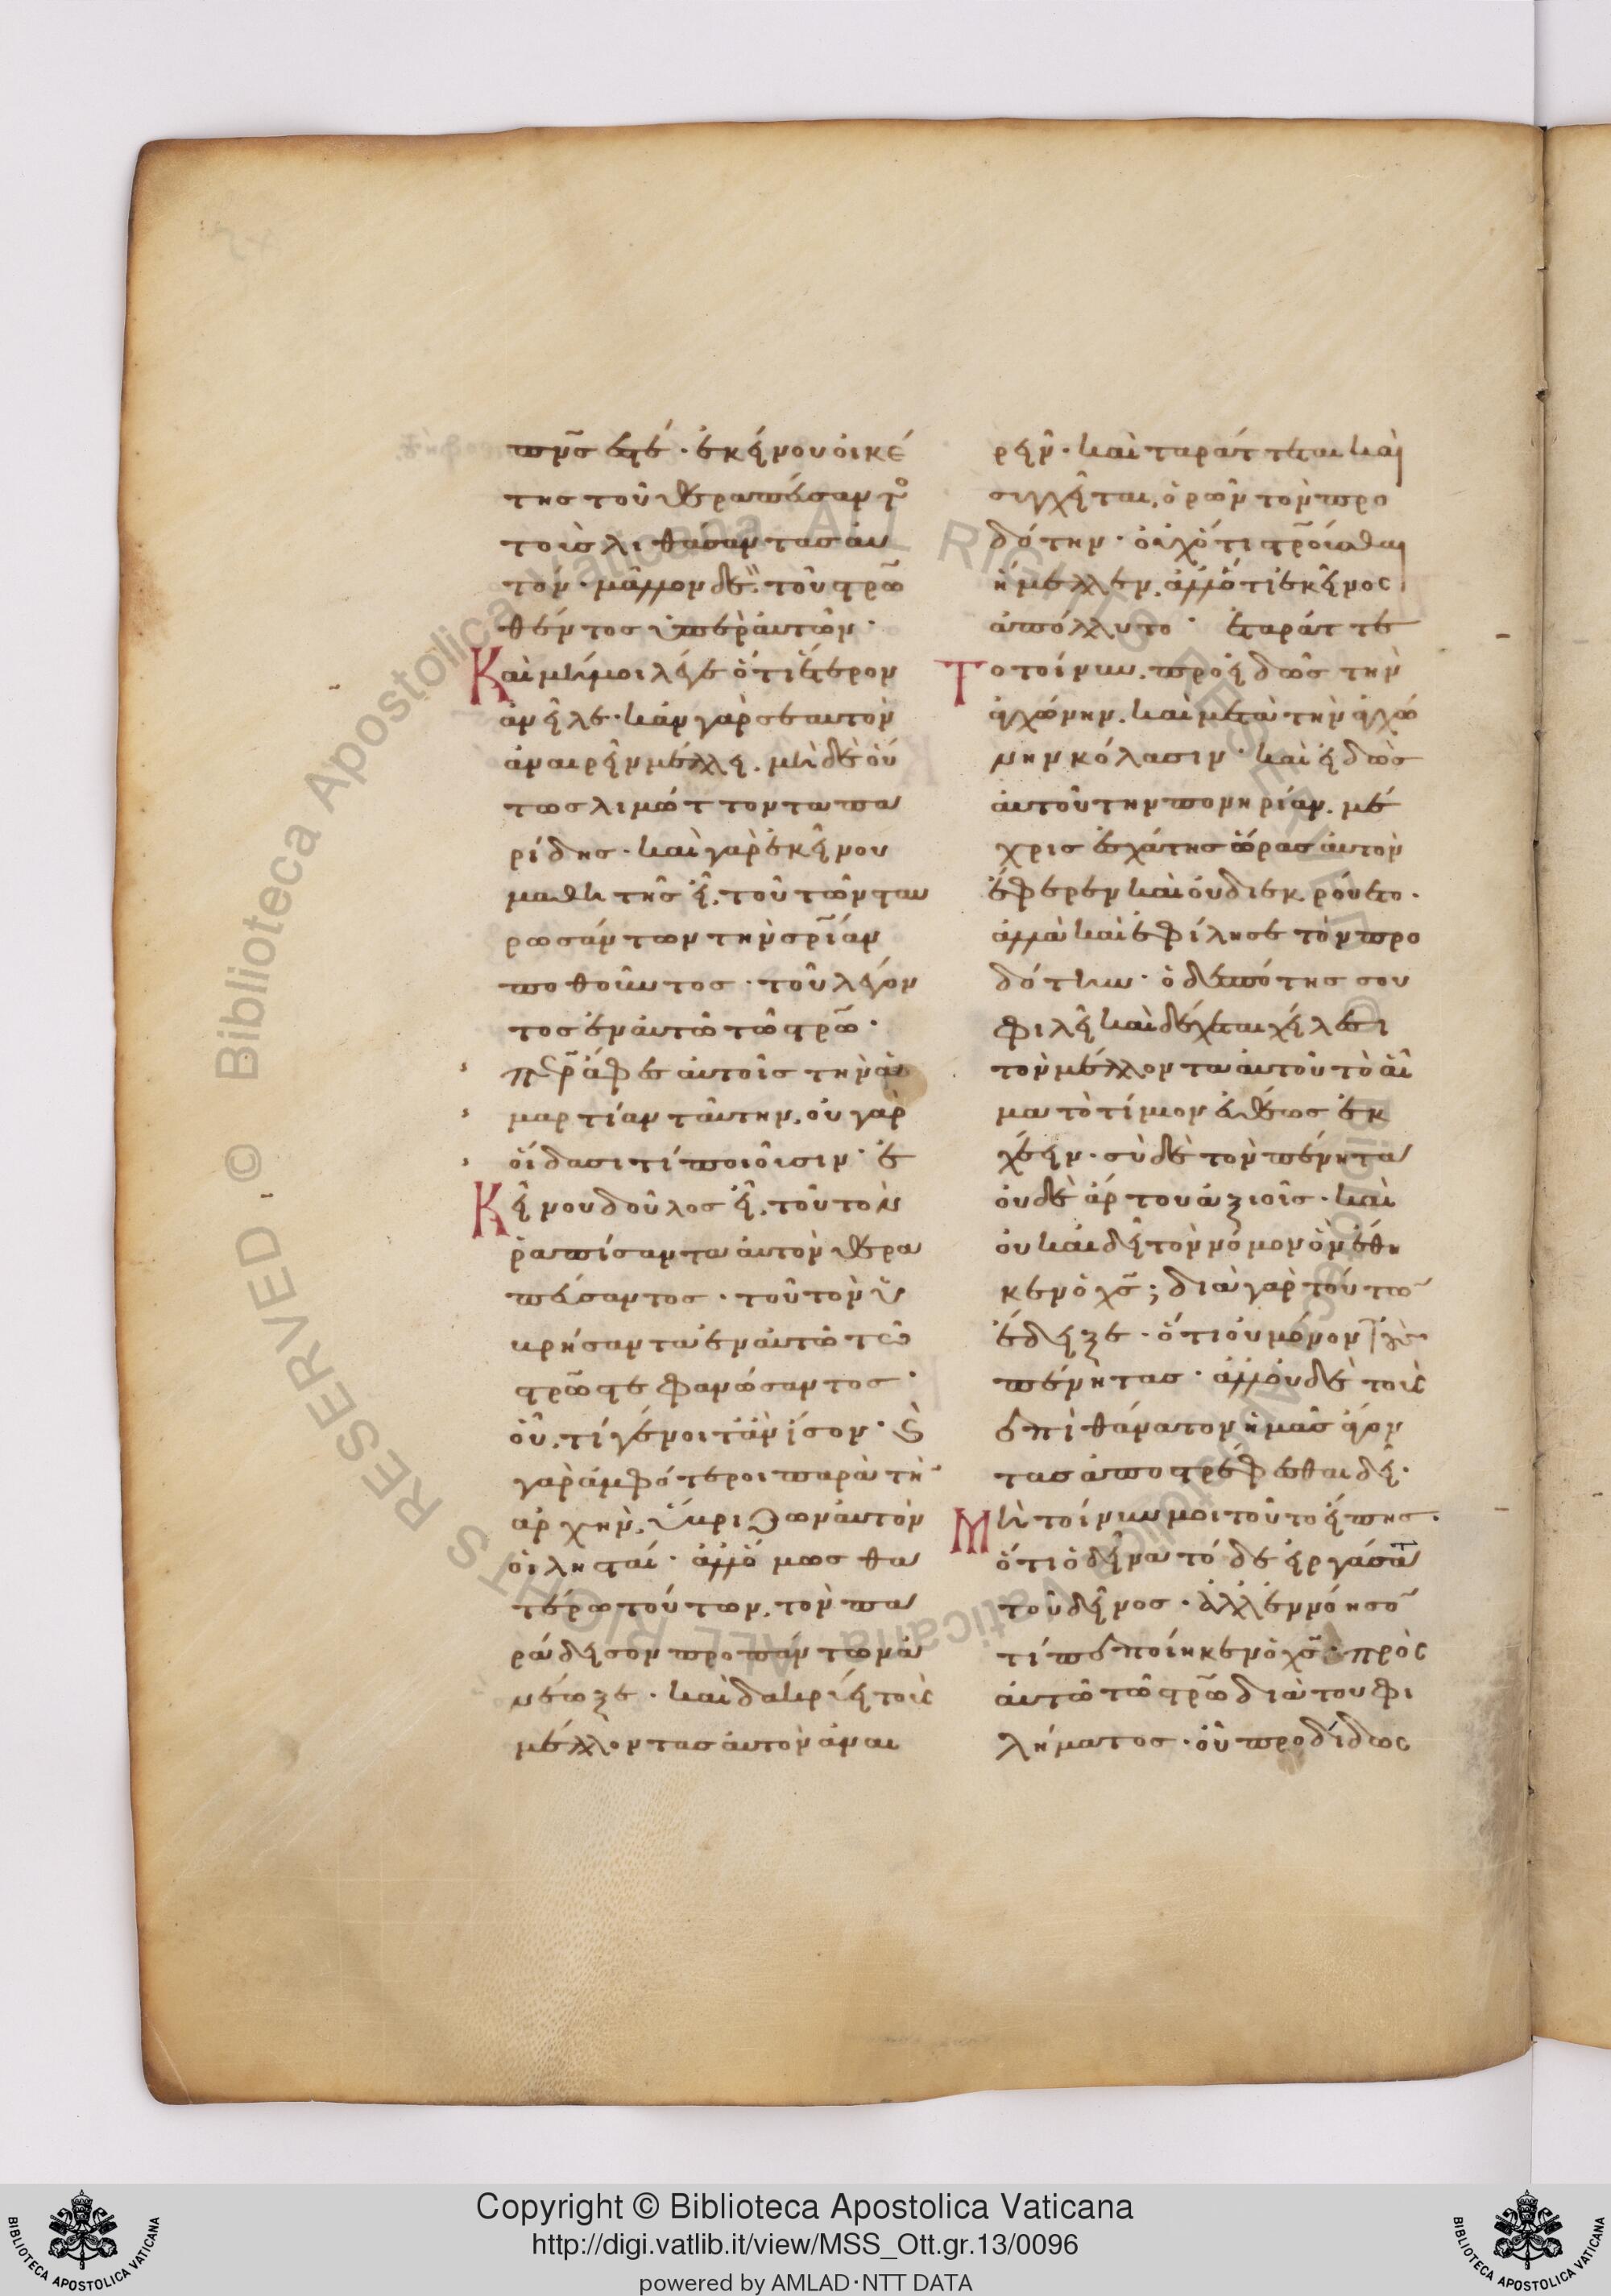 πν̅ς ἐστέ· ἐκείνου οἰκέ
της τοῦ θεραπεύσαντο
τοὺς λιθάσαντας αὐ
τόν· μᾶλλον δὲ τοῦ στρω̅
θέντος ὑπὲρ αὐτῶν·
Καὶ μή μοι λέγε ὅτι ἕτερον
ἀνεῖλε· κἂν γὰρ σὲ αὐτὸν
ἀναιρεῖν μέλλει. μηδὲ οὕ
τως λιμώττοντα πα
ρίδης· καὶ γὰρ ἐκείνου
μαθητὴς εἶ, τοῦ τῶν σταυ
ρωσάντων τὴν σρ̅ίαν
ποθοῦντος· τοῦ λέγον
τος ἐν αὐτῶ τῶ στρ̅ω·
πε̅ρ ἄφες αὐτοῖς τὴν ἁ
μαρτίαν ταύτην, οὐ γὰρ
οἴδασι τί ποιοῦσιν· ἐ
Κείνου δοῦλος εἶ, τοῦ τὸν
ῥαπίσαντα αὐτὸν θερα
πεύσαντος· τοῦ τὸν ὑ
βρήσαντα ἐν αὐτῶ τῶ
στρ̅ω στεφανώσαντος·
οὗ, τί γένοιτ' ἂν ἴσον· καὶ
γὰρ ἀμφότεροι παρὰ τὴν
ἀρχὴν, ὕβριζον αὐτὸν
οἱ λησταί· ἀλλ' ὅμως θα
τέρω τούτων, τὸν πα
ράδεισον πρὸ πάντων ἀ
νέωξε· καὶ δακρύει τοὺς
μέλλοντας αὐτὸν ἀναι
ρεῖν· καὶ ταράττεται καὶ
συγχεῖται, ὁρῶν τὸν προ
δότην· οὐχ ὅτι στρ̅οῦσθαι
ἤμελλεν, ἀλλ' ὅτι ἐκεῖνος
ἀπόλλυτο· ἐταράττε
Το τοίνυν, προειδὼς τὴν
ἀγχόνην, καὶ μετὰ τὴν ἀγχό
νην κόλασιν· καὶ εἰδὼς
αὐτοῦ τὴν πονηρίαν. μέ
χρις ἐσχάτης ὥρας αὐτὸν
ἔφερεν καὶ οὐ διεκρούετο·
ἀλλὰ καὶ ἐφίλησε τὸν προ
δότην· ὁ δεσπότης σου
φιλεῖ καὶ δέχεται χείλεσι
τὸν μέλλοντα αὐτοῦ τὸ αἷ
μα τὸ τίμιον εὐθέως ἐκ
χέειν· σὺ δὲ τὸν πένητα
οὐδὲ ἄρτου ἀξιοῖς· καὶ
οὐκ αἰδεῖ τὸν νόμον ὃν ἔθη
κεν ὁ χς̅; διὰ γὰρ τούτων
ἔδειξε· ὅτι οὐ μόνον τοὺς
πένητας· ἀλλ' οὐδὲ τοὺς
ἐπὶ θάνατον ἡμᾶς ἄγον
τας ἀποστρέφεσθαι δεῖ·
Μὴ τοίνυν μοι τοῦτο εἴπης·
ὅτι ὁ δεῖνα τόδε εἰργάσατο
τοῦ δεῖνος· ἀλλ' ἐννόησον
τί πεποίηκεν ὁ χς̅ πρὸς
αὐτῶ τῶ στρ̅ω διὰ του φι
λήματος· οὗ προδίδως
Copyright © Biblioteca Apostolica Vaticana
http://digi.vatlib.it/view/MSS_Ott.gr.13/0096
powered by AMLAD·NTT DATA